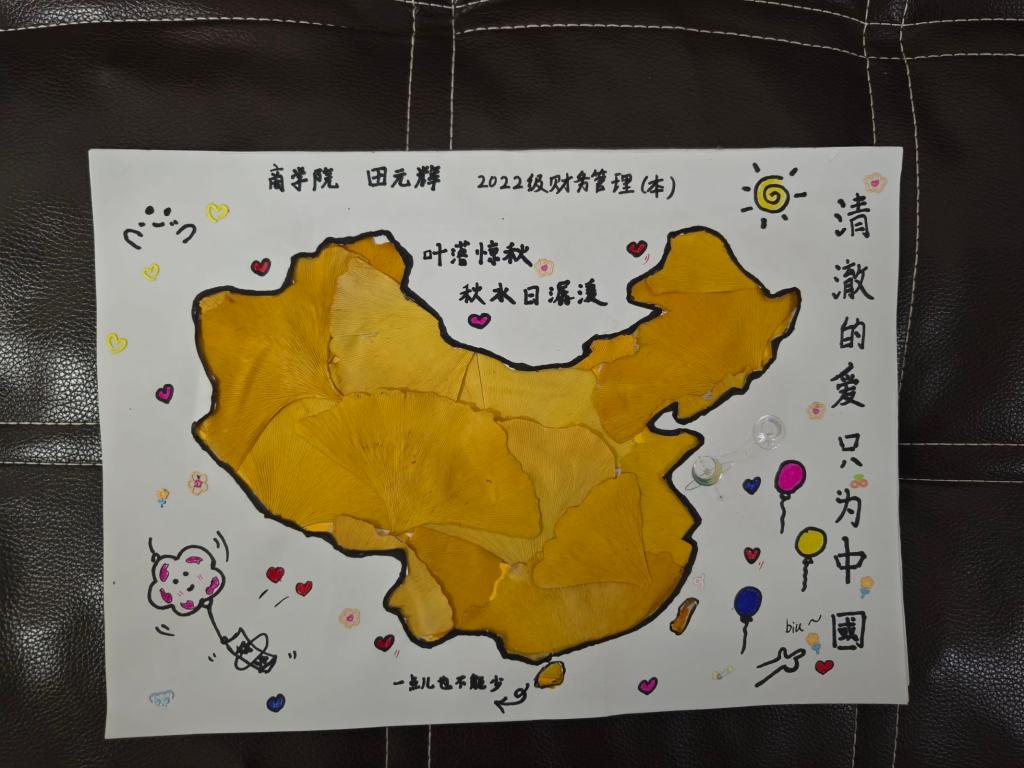 商学院 田元辉 2022级财务管理(本)
叶落惊秋
秋水日潺湲
清澈的爱只为中國
biu~
一点儿也不能少